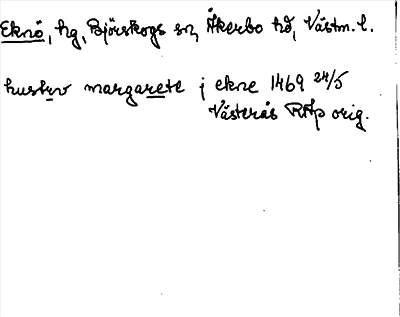 Eknö, hg, Björskogs sn, Åkerbo hd, Västm. l.
hustrv margarete j ekne 1469 24/5
Västerås RAp orig.